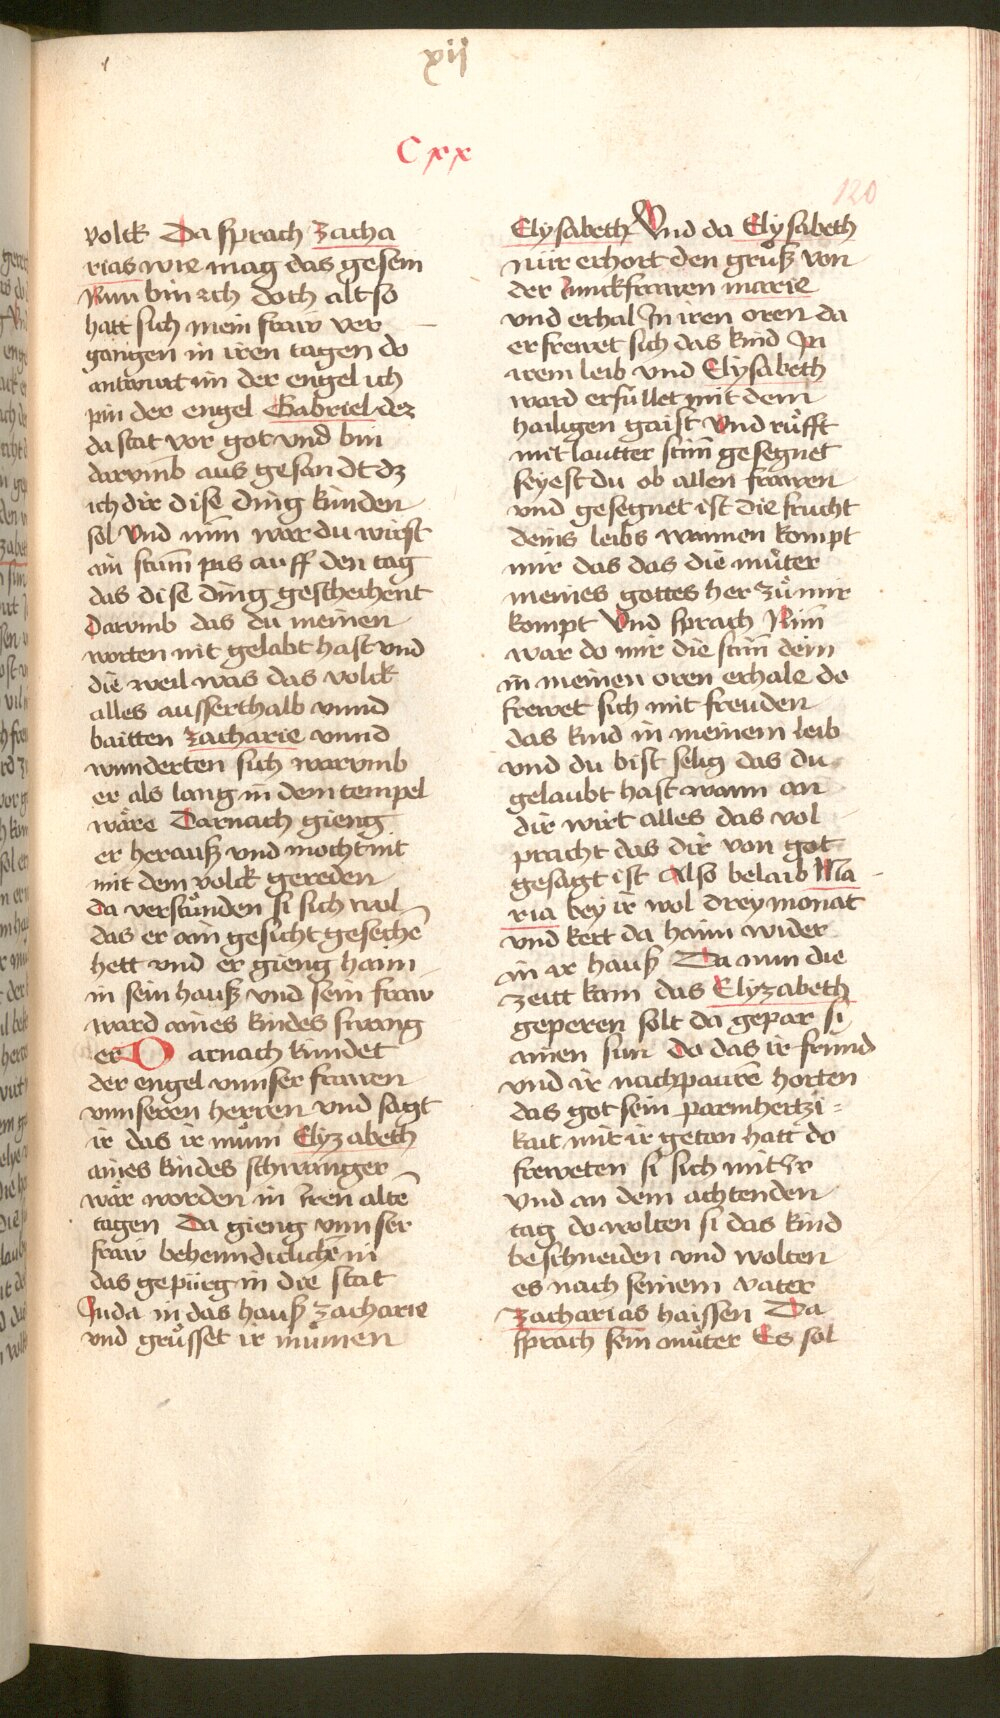 xij
Cxx
120
volck Da sprach zacha
rias wie mag das gesein
Nun bin ich doch alt so
hatt sich mein fraw ver
gangen in iren tagen do
antwurt im der engel ich
pin der engel Gabriel dez
da stat vor got vnd bin
darvmb aus gesandt dz
ich dir dise ding kunden
sol Vnd nim war du wirst
ain stum pis auff den tag
das dise ding geschehent
Darvmb das du meinen
worten nit gelabt hast vnd
die weil was das volck
alles ausserthalb vnnd
baitten zacharie vnnd
wunderten sich warvmb
er als lang in dem tempel
wäre Darnach gieng
er herauß vnd mocht nit
mit dem volck gereden
da verstůnden si sich wol
das er ain gesicht gesehē
hett vnd er gieng haim
in sein hauß vnd sein fraw
ward aines kindes swang
er Darnach kundet
der engel vnnser frawen
vnnseren herren vnd sagt
ir das ir mům Elyzabeth
aines kindes schwanger
wär worden in iren altē
tagen Da gieng vnnser
fraw behenndiclichē in
das gepürg in die stat
Juda in das hauß zacharie
vnd grůsset ir můmen
Elysabeth Vnd da Elysabeth
nür erhort den grůß von
der iunckfrawen marie
vnd erhal In iren oren da
erfrewet sich das kind In
irem leib vnd Elysabeth
ward erfüllet mit dem
hailigen gaist Vnd růfft
mit lautter stim gesegnet
seyest du ob allen frawen
vnd gesegnet ist die frucht
deins leibs wannen kompt
mir das das die můter
meines gottes her zů mir
kompt Vnd sprach Nim
war do mir die stim dein
in meinen oren erhale do
frewet sich mit freuden
das kind in meinem leib
vnd du bist selig das du
gelaubt hast wann an
dir wirt alles das vol
pracht das dir von got
gesagt ist Also belaib Ma
ria bey ir wol drey monat
vnd kert da haim wider
in ir hauß Da nun die
zeitt kam das Elyzabeth
geperen solt da gepar si
ainen sun do das ir frund
vnd ir nachpaurē horten
das got sein parmhertzi=
kait mit ir getan hatt do
freweten si sich mit ir
Vnd an dem achtenden
tag do wolten si das kind
beschneiden vnd wolten
es nach seinem vater
Zacharias haissen Da
sprach sein můter Es sol